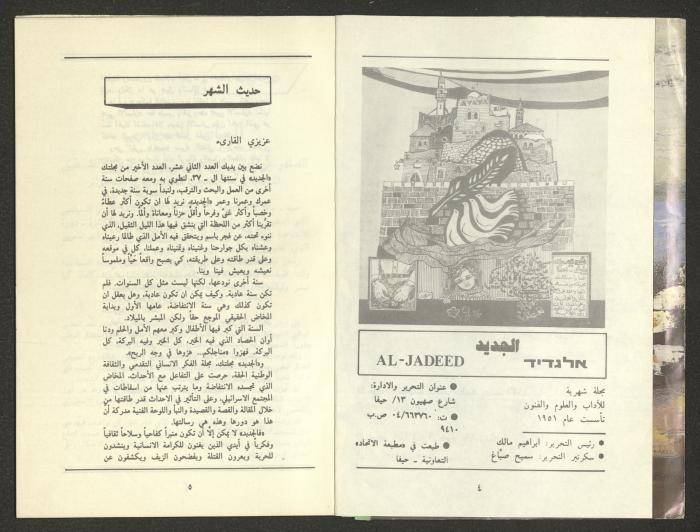 الجديد
אלגדיד
AL-JADEED
مجلة شهرية
للآداب والعلوم والفنون
تأسست عام ١٩٥١
● رئيس التحرير: ابراهيم مالك
● سكرتير التحرير: سميح صبّاغ
● عنوان التحرير والادارة:
شارع صهيون ١٣/ حيفا
● ت: ٠٤/٦٦٣٧٦٠ ص.ب
٩٤١٠
● طبعت في «مطبعة الاتحاد»
التعاونية ـ حيفا
٤
حديث الشهر
عزيزي القارىء
نضع بين يديك العدد الثاني عشر، العدد الأخير من مجلتك
«الجديد» في سنتها الـ ـ ٣٧، لنطوي به ومعه صفحات سنة
أخرى من العمل والبحث والترقب، ولنبدأ سوية سنة جديدة، في
عمرك وعمرنا وعمر «الجديد»، نريد لها ان تكون أكثر عطاءً
وخصباً وأكثر غنىً وفرحاً وأقلّ حزناً ومعاناة وألماً. ونريد لها أن
تقرّبنا أكثر من اللحظة التي ينشق فيها هذا الليل الثقيل، الذي
ننوء تحته، عن فجر باسم ويتحقق فيه الأمل الذي طالما رعيناه
وعشناه بكل جوارحنا وغنيناه وتمنيناه وعملنا، كل في موقعه
وعلى قدر طاقته وعلى طريقته، كي يصبح واقعاً حيّاً وملموساً
نعيشه ويعيش فينا وبنا.
سنة أخرى نودعها، لكنها ليست مثل كل السنوات. فلم
تكن سنة عادية. وكيف يمكن ان تكون عادية، وهل يعقل ان
تكون كذلك وهي سنة الانتفاضة، عامها الأول وبداية
المخاض الحقيقي الموجع حقاً ولكن المبشر بالميلاد.
السنة التي كبر فيها الأطفال وكبر معهم الأمل والحلم ودنا
أوان الحصاد الذي فيه الخير، كل الخير وفيه البركة، كل
البركة. فهزوا «مناجلكم.. هزوها في وجه الريح».
و«الجديد» مجلتك، مجلة الفكر الانساني التقدمي والثقافة
الوطنية الحقة. حرصت على التفاعل مع الأحداث. المخاض
الذي تجسده الانتفاضة وما يترتب عنها من اسقاطات في
المجتمع الاسرائيلي، وعلى التأثير في الاحداث قدر طاقتها من
خلال المقالة والقصة والقصيدة والنبأ واللوحة الفنية مدركة أن
هذا هو دورها وهذه هي رسالتها.
«فالجديد» لا يمكن إلاّ أن تكون منبراً كفاحياً وسلاحاً ثقافياً
وفكرياً في أيدي الذين يغنون للكرامة الانسانية وينشدون
للحرية ويعرون القتلة ويفضحون الزيف ويكشفون عن
٥